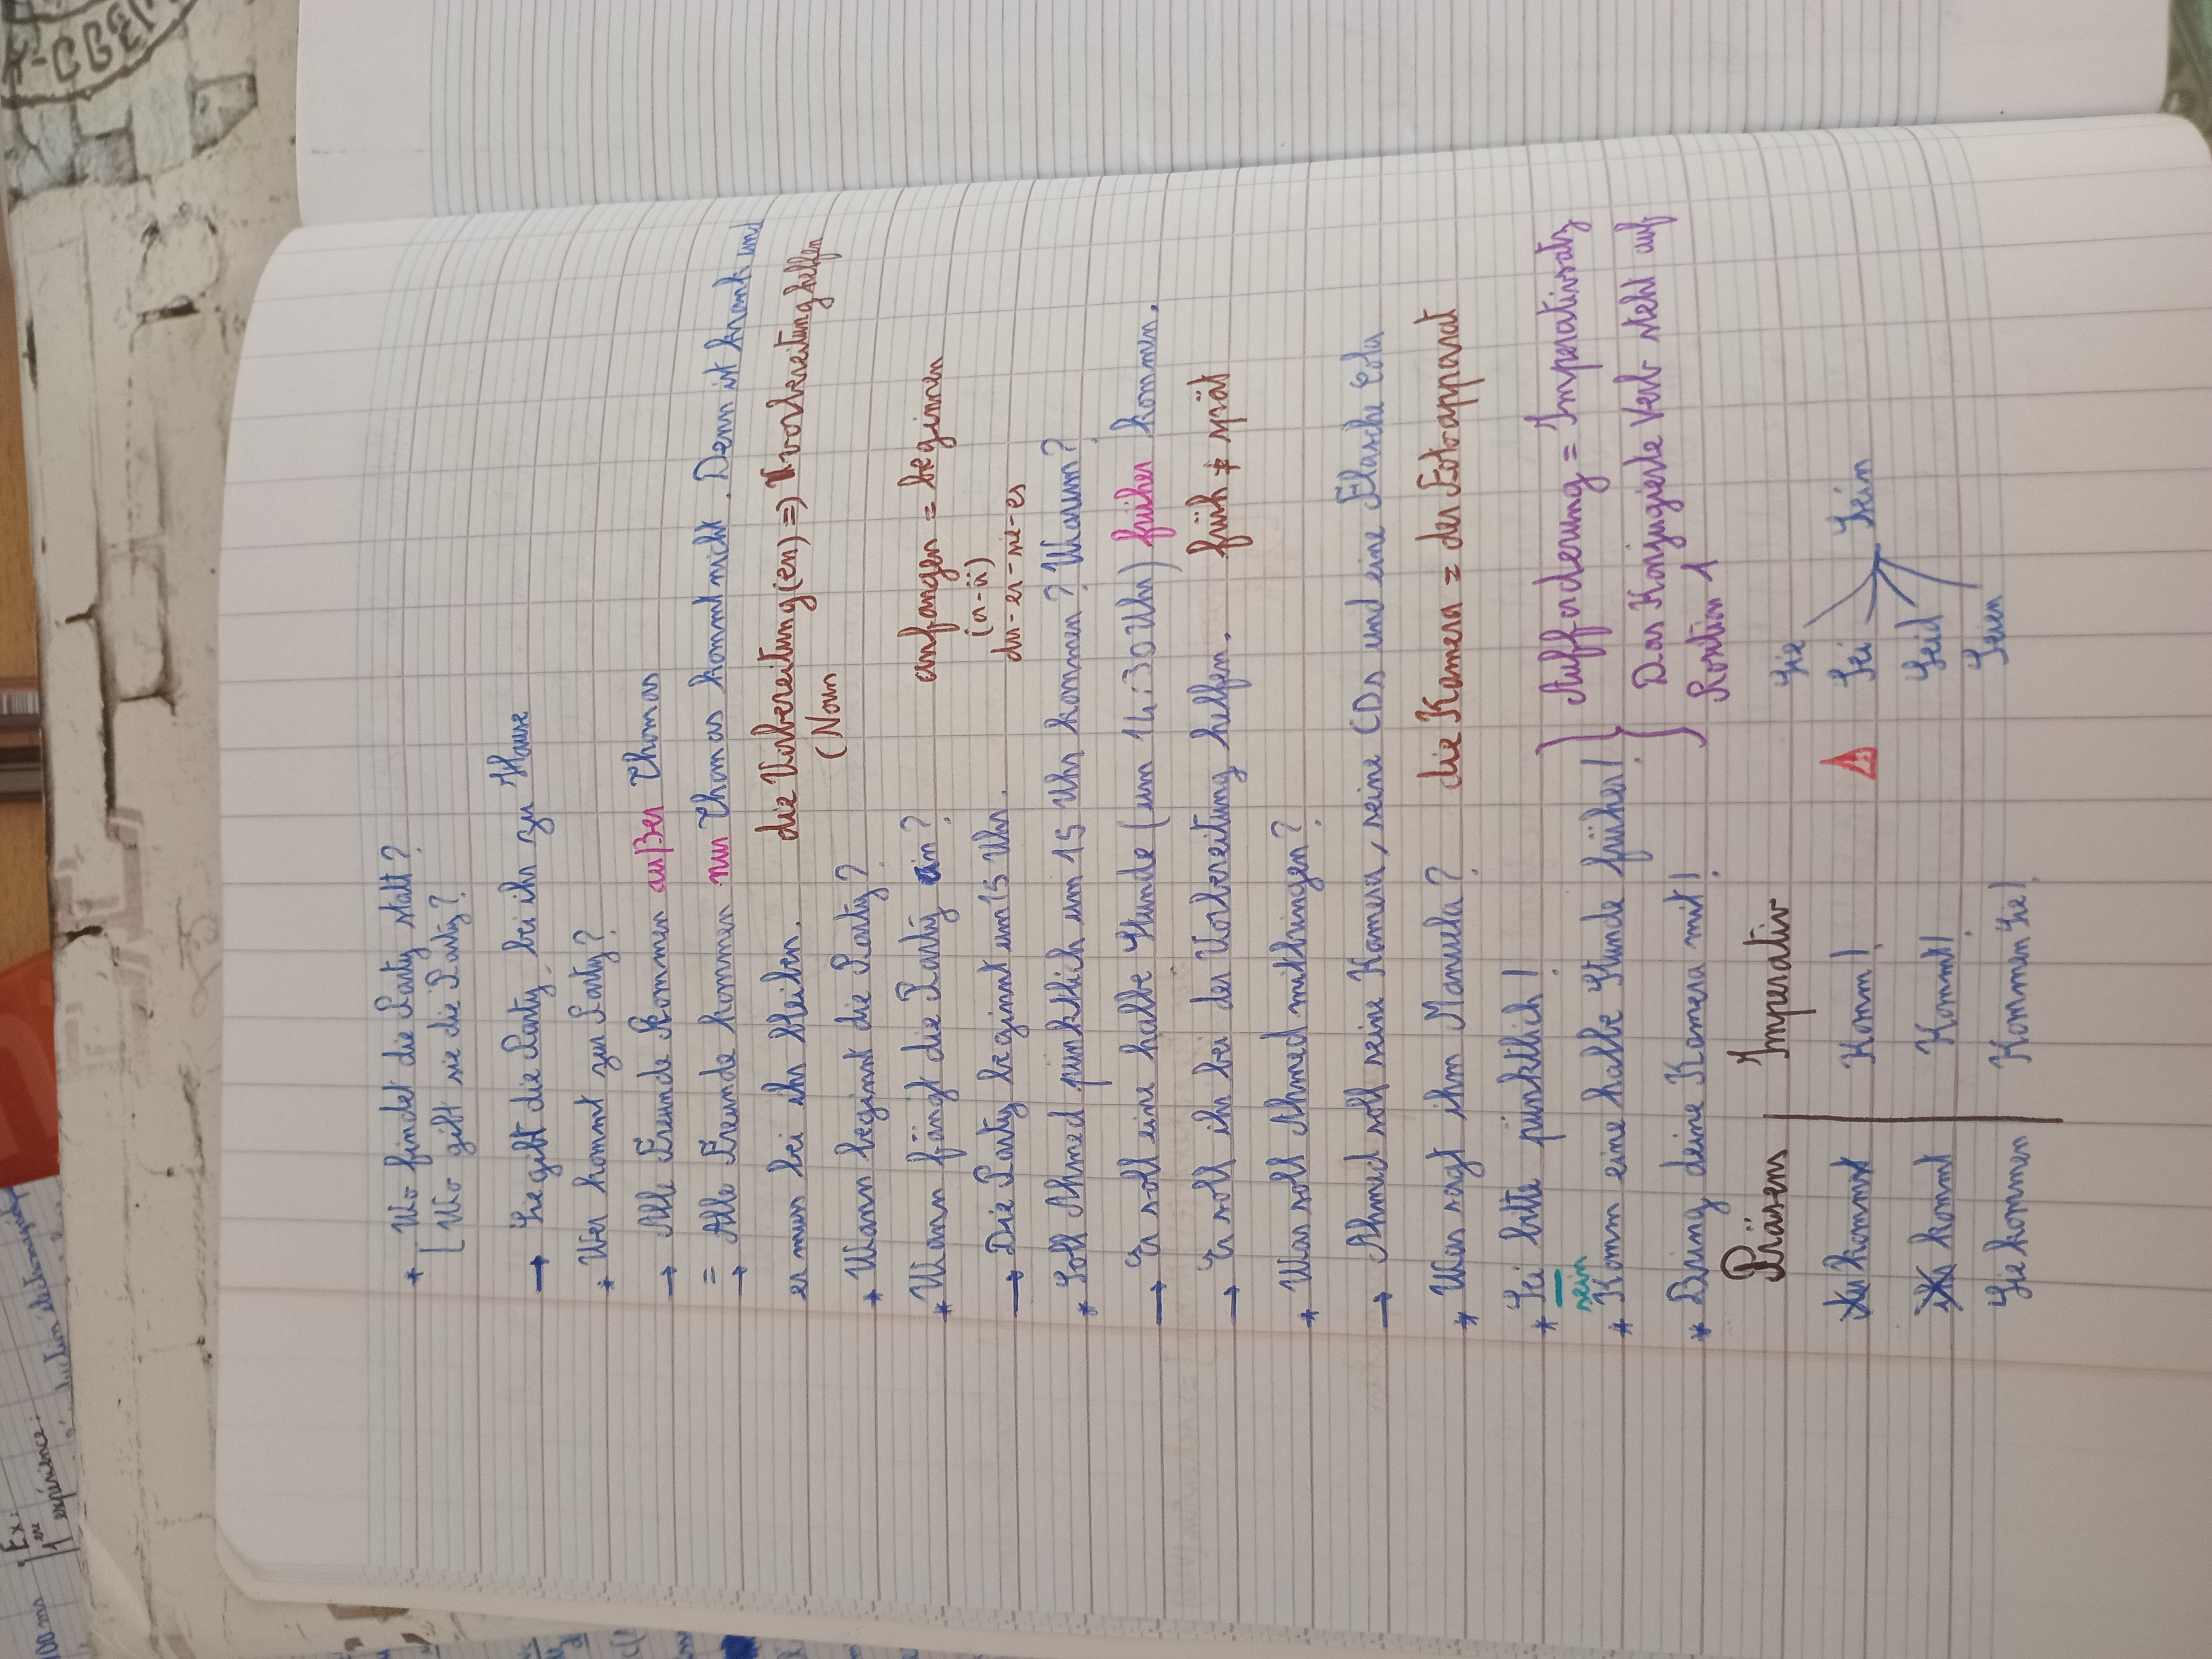 * Wo findet die Party statt?
[ Wo gibt sie die Party?
→ Sie gibt die Party bei ihr zu Hause
* Wer kommt zur Party?
→ Alle Freunde kommen außer Thomas
= Alle Freunde kommen nur Thomas kommt nicht. Denn ist krank und
→
er muss bei ihr bleiben.
die Vorbereitung(en) => vorbereitung helfen
(Noun
* Wann beginnt die Party?
* Wann fängt die Party an?
anfangen = beginnen
(a-ä)
du-er-sie-es
→ Die Party beginnt um 15 Uhr.
* Soll Ahmed pünktlich um 15 Uhr kommen? Warum?
→ Er soll eine halbe Stunde (um 14:30 Uhr) früher kommen.
→ Er soll ihr bei der Vorbereitung helfen.
früh ≠ spät
* Was soll Ahmed mitbringen?
→ Ahmed soll seine Kamera, seine CDs und eine Flasche Cola
* Was sagt ihm Manuela?
die Kamera = der Fotoapparat
* Sei bitte pünktlich!
sein
* Komm eine halbe Stunde früher!
* Bring deine Kamera mit!
Aufforderung = Imperativsatz
Das Konjugierte Verb steht auf
Position 1
Präsens | Imperativ
du kommst | Komm!
ihr kommt | Kommt!
Sie kommen | Kommen Sie!
Sie
Sei
Seid
Seien
Sein
Ex:
1ere expérience:
100 ms